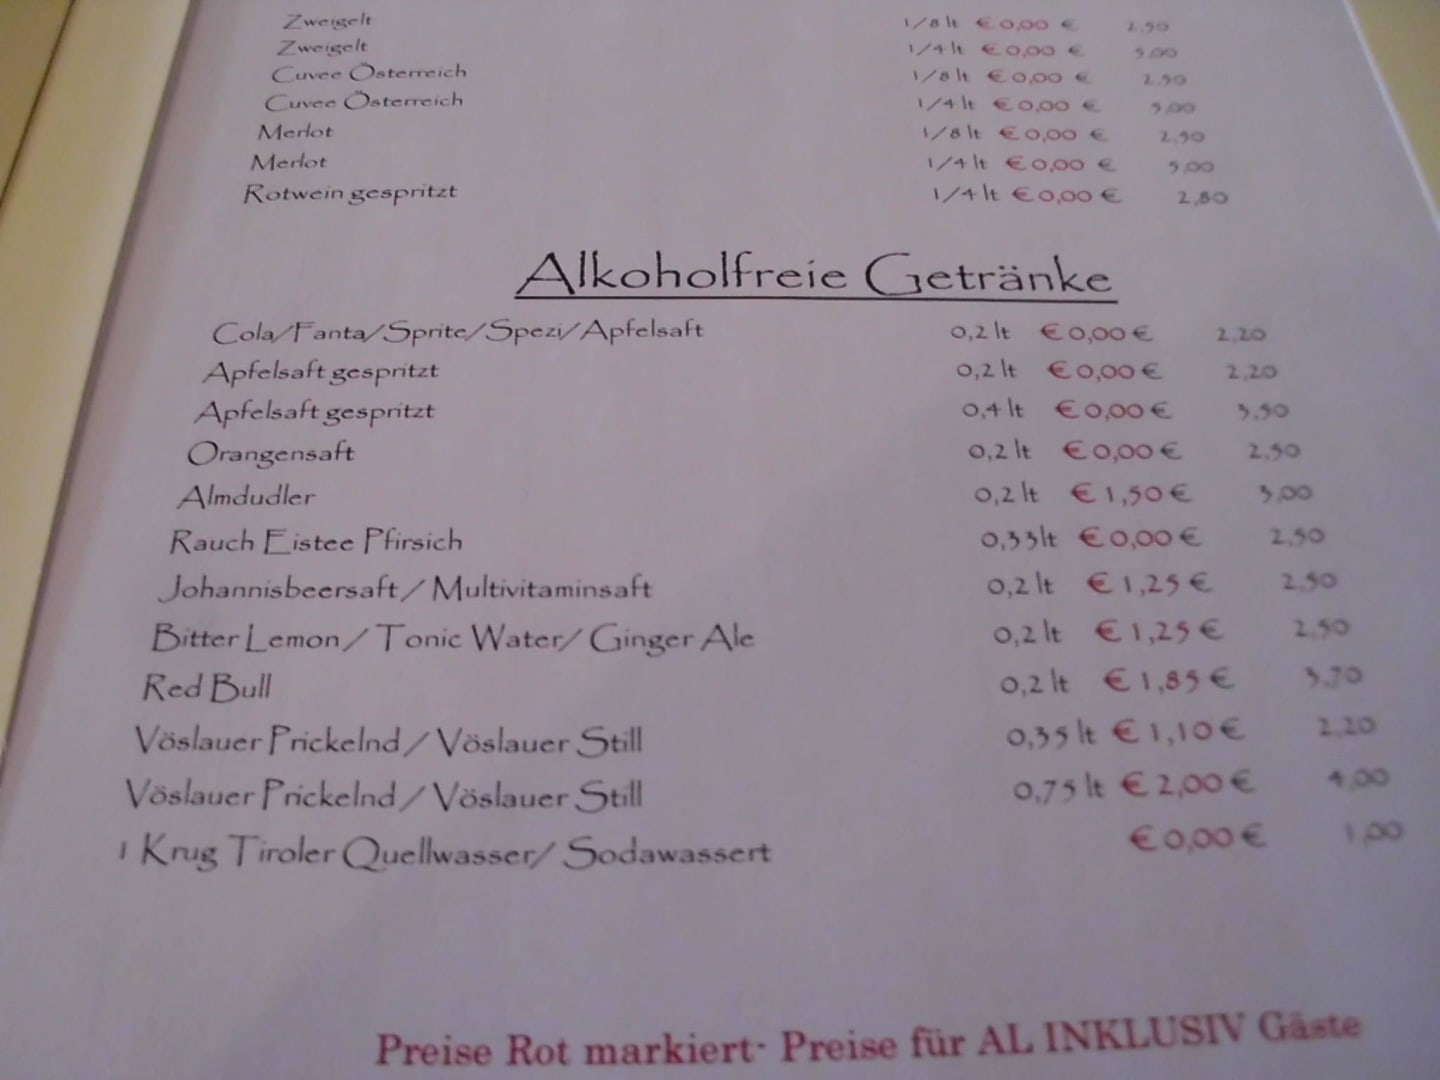 Zweigelt 1/8 lt € 0,00 € 2,50
Zweigelt 1/4 lt € 0,00 € 5,00
Cuvee Österreich 1/8 lt € 0,00 € 2,50
Cuvee Österreich 1/4 lt € 0,00 € 5,00
Merlot 1/8 lt € 0,00 € 2,50
Merlot 1/4 lt € 0,00 € 5,00
Rotwein gespritzt 1/4 lt € 0,00 € 2,80
Alkoholfreie Getränke
Cola/Fanta/Sprite/Spezi/Apfelsaft 0,2 lt € 0,00 € 2,20
Apfelsaft gespritzt 0,2 lt € 0,00 € 2,20
Apfelsaft gespritzt 0,4 lt € 0,00 € 3,50
Orangensaft 0,2 lt € 0,00 € 2,50
Almdudler 0,2 lt € 1,50 € 3,00
Rauch Eistee Pfirsich 0,33lt € 0,00 € 2,50
Johannisbeersaft/ Multivitaminsaft 0,2 lt € 1,25 € 2,50
Bitter Lemon/ Tonic Water/ Ginger Ale 0,2 lt € 1,25 € 2,50
Red Bull 0,2 lt € 1,85 € 3,70
Vöslauer Prickelnd/ Vöslauer Still 0,35 lt € 1,10 € 2,20
Vöslauer Prickelnd/ Vöslauer Still 0,75 lt € 2,00 € 4,00
1 Krug Tiroler Quellwasser/ Sodawassert € 0,00 € 1,00
Preise Rot markiert- Preise für AL INKLUSIV Gäste